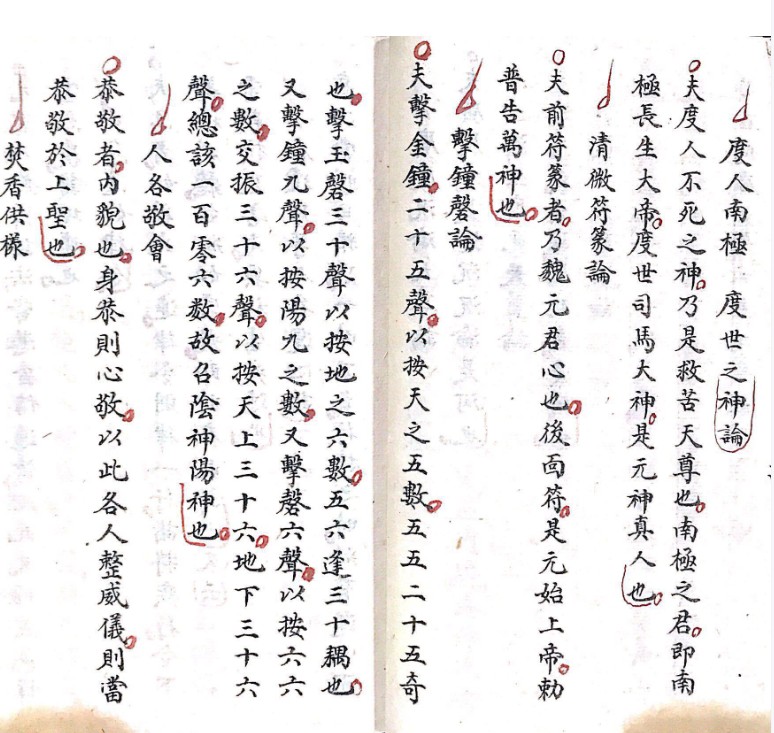 度人南極　度世之神論
夫度人不死之神乃是救苦天尊也南極之君即南
極長生大帝度世司馬大神是元神真人也
清微符篆論
夫前符篆者乃魏元君心也後面符是元始上帝勅
普告萬神也
擊鐘磬論
夫擊金鐘二十五聲以按天之五數五五二十五奇
也擊玉磬三十聲以按地之六數五六逢三十耦也
又擊鐘九聲以按陽九之數又擊磬六聲以按六六
之數交振三十六聲以按天上三十六地下三十六
聲總該一百零六数故召陰神陽神也
人各敬會
恭敬者内貌也身恭則心敬以此各人整威儀則當
恭敬於上聖也
焚香供樣